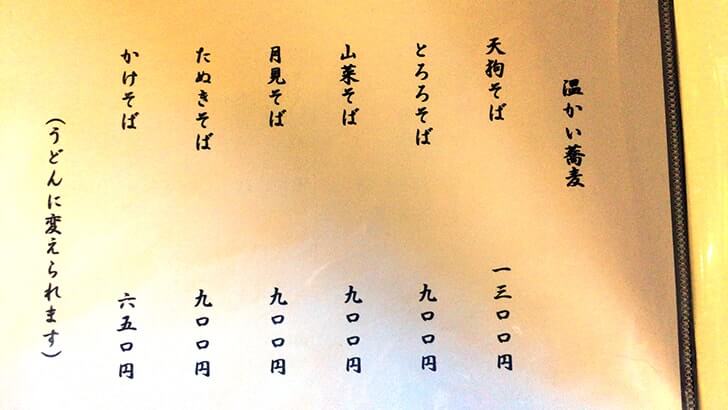 温かい蕎麦
天狗そば 一三〇〇円
とろろそば 九〇〇円
山菜そば 九〇〇円
月見そば 九〇〇円
たぬきそば 九〇〇円
かけそば 六五〇円
(うどんに変えられます)